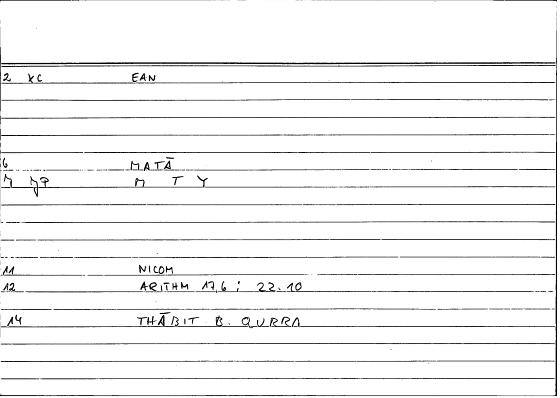 2 KC EAN
6 MATĀ
M T Y
11 NICOM
12 ARITHM 17,6 ; 22.10
14 THĀBIT B. QURRA